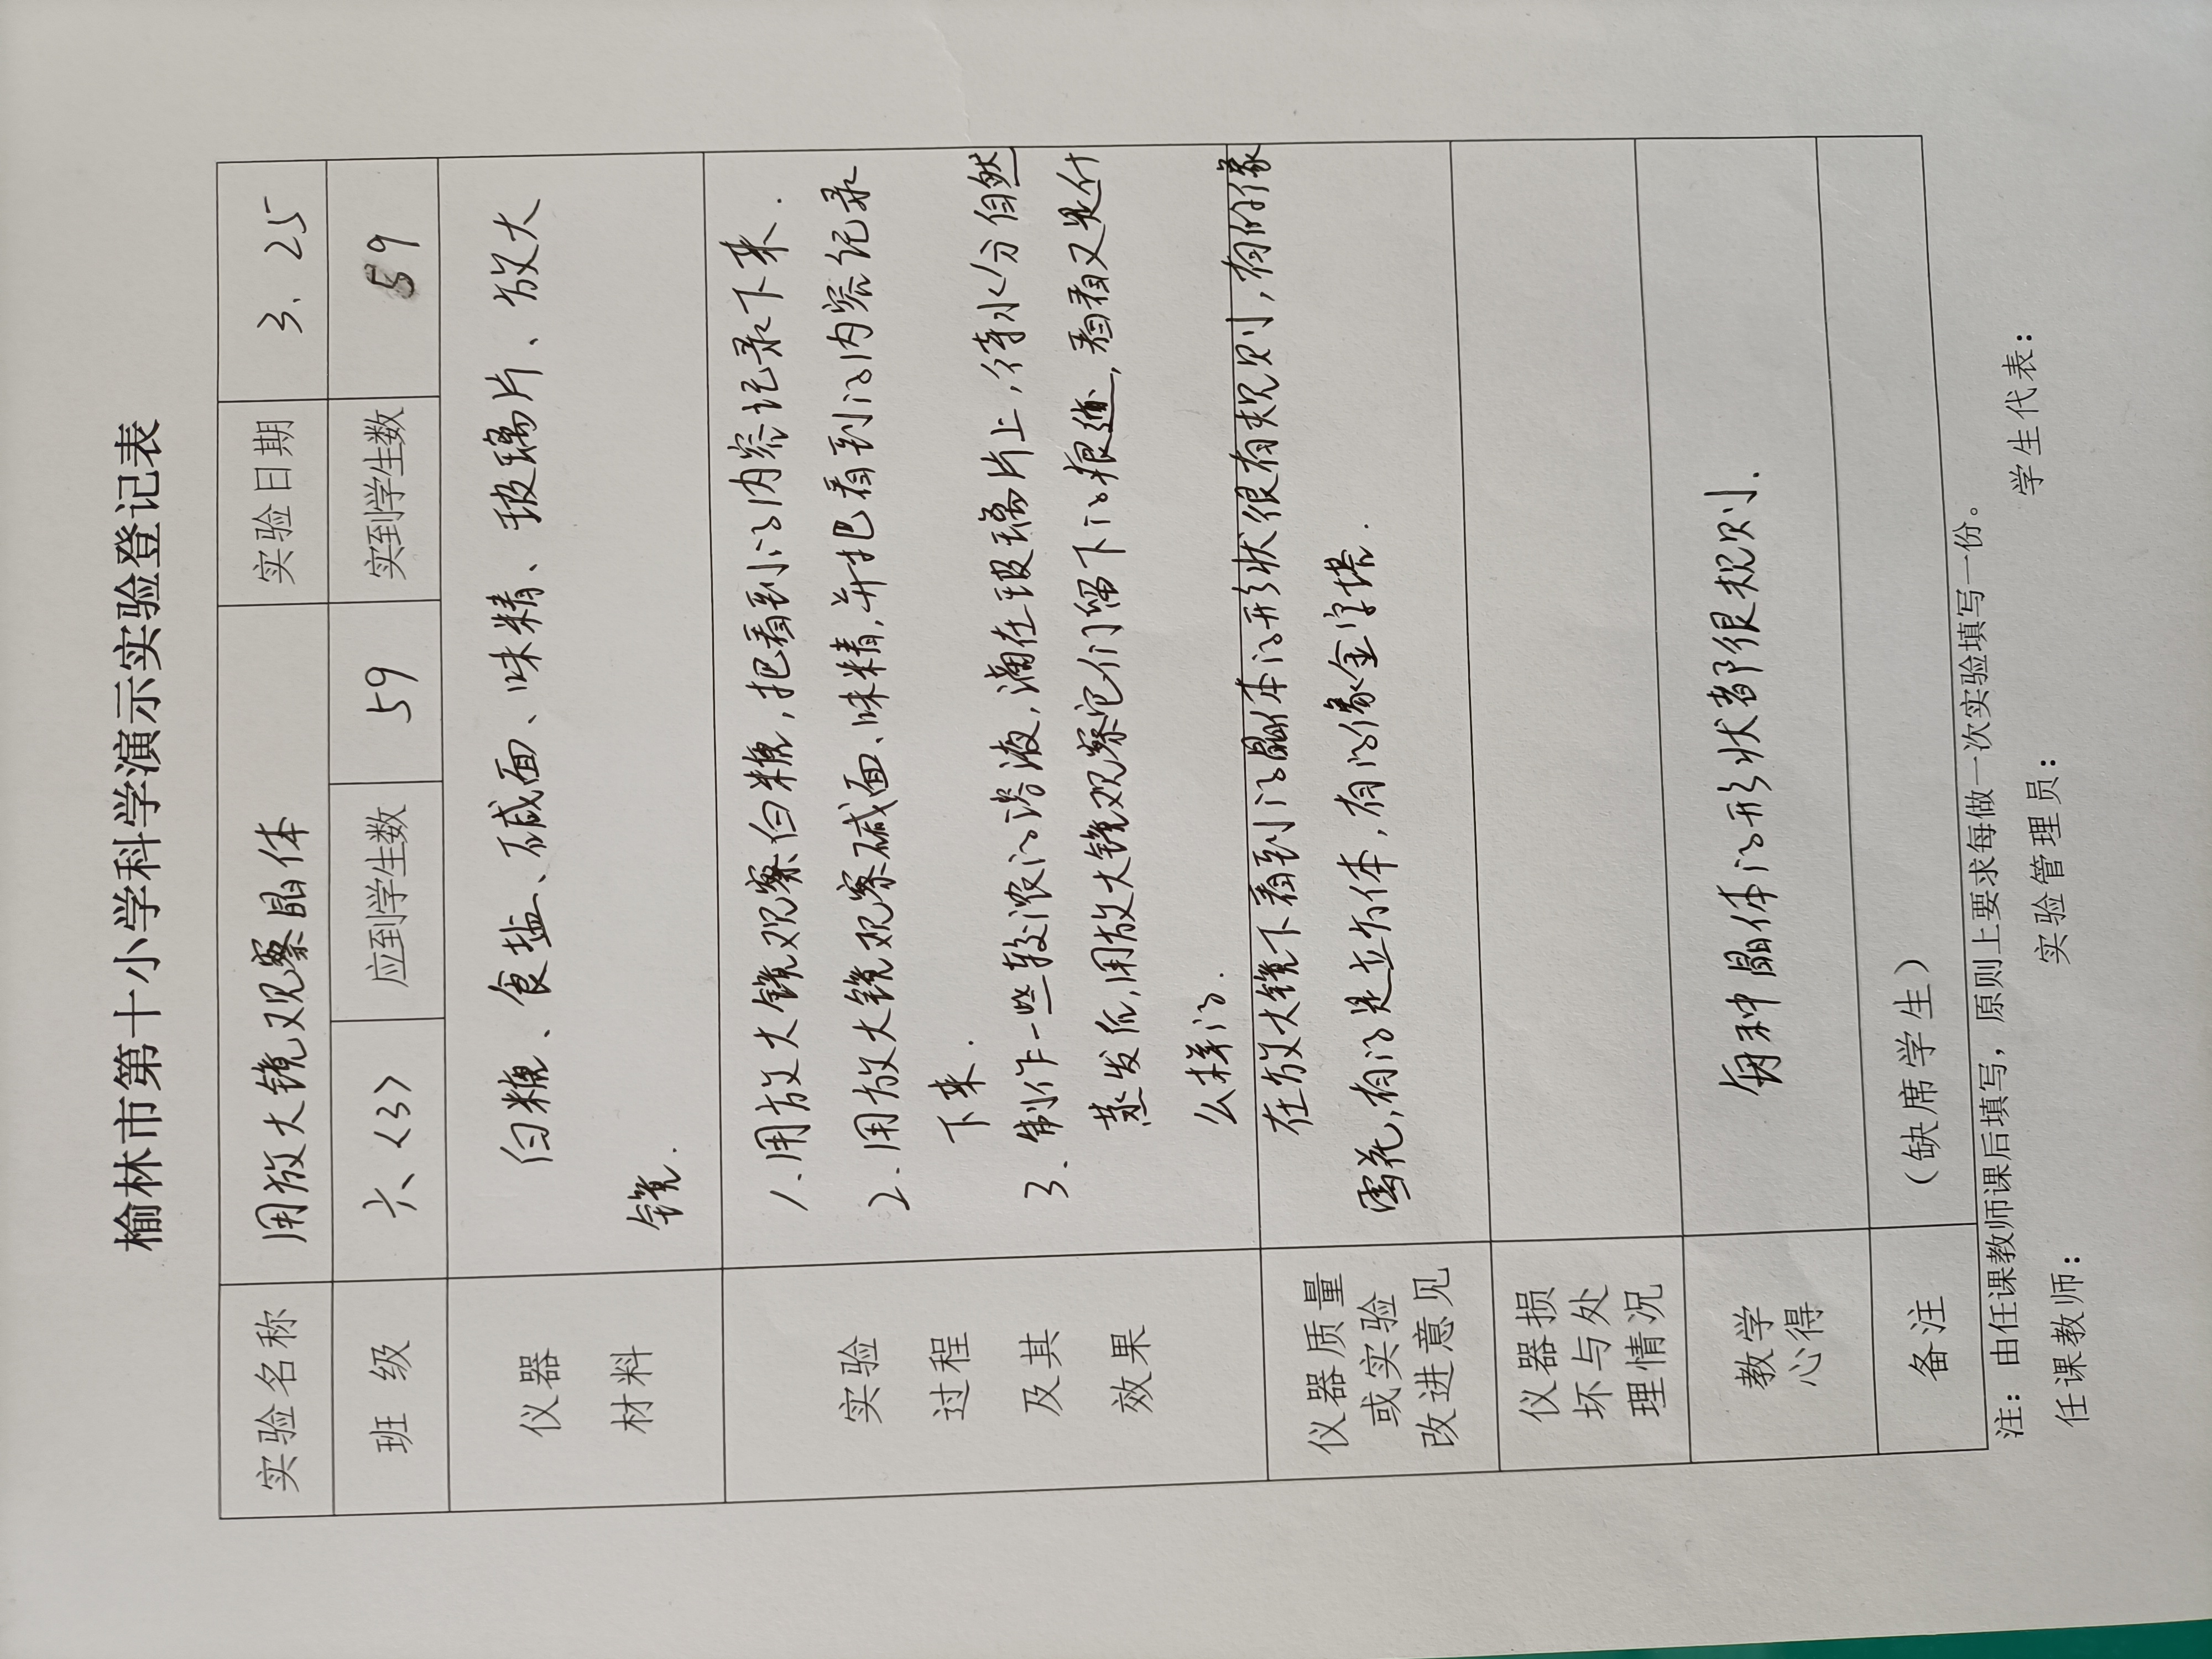 榆林市第十小学科学演示实验登记表
实验名称 用放大镜观察晶体 实验日期 3.25
班 级 六〈3〉 应到学生数 59 实到学生数 59
仪器
材料
白糖、食盐、碱面、味精、玻璃片、放大
镜.
实验
过程
及其
效果
1.用放大镜观察白糖,把看到的内容记录下来.
2.用放大镜观察碱面、味精,并把看到的内容记录
下来.
3.制作一些较浓的溶液,滴在玻璃片上,待水分自然
蒸发后,用放大镜观察它们留下的痕迹,看看又是什
么样的.
仪器质量
或实验
改进意见
在放大镜下看到的晶体的形状很有规则,有的像
雪花,有的是立方体,有的像金字塔.
仪器损
坏与处
理情况
教学
心得
每种晶体的形状都很规则.
备注 （缺席学生）
注：由任课教师课后填写，原则上要求每做一次实验填写一份。
任课教师： 实验管理员： 学生代表：